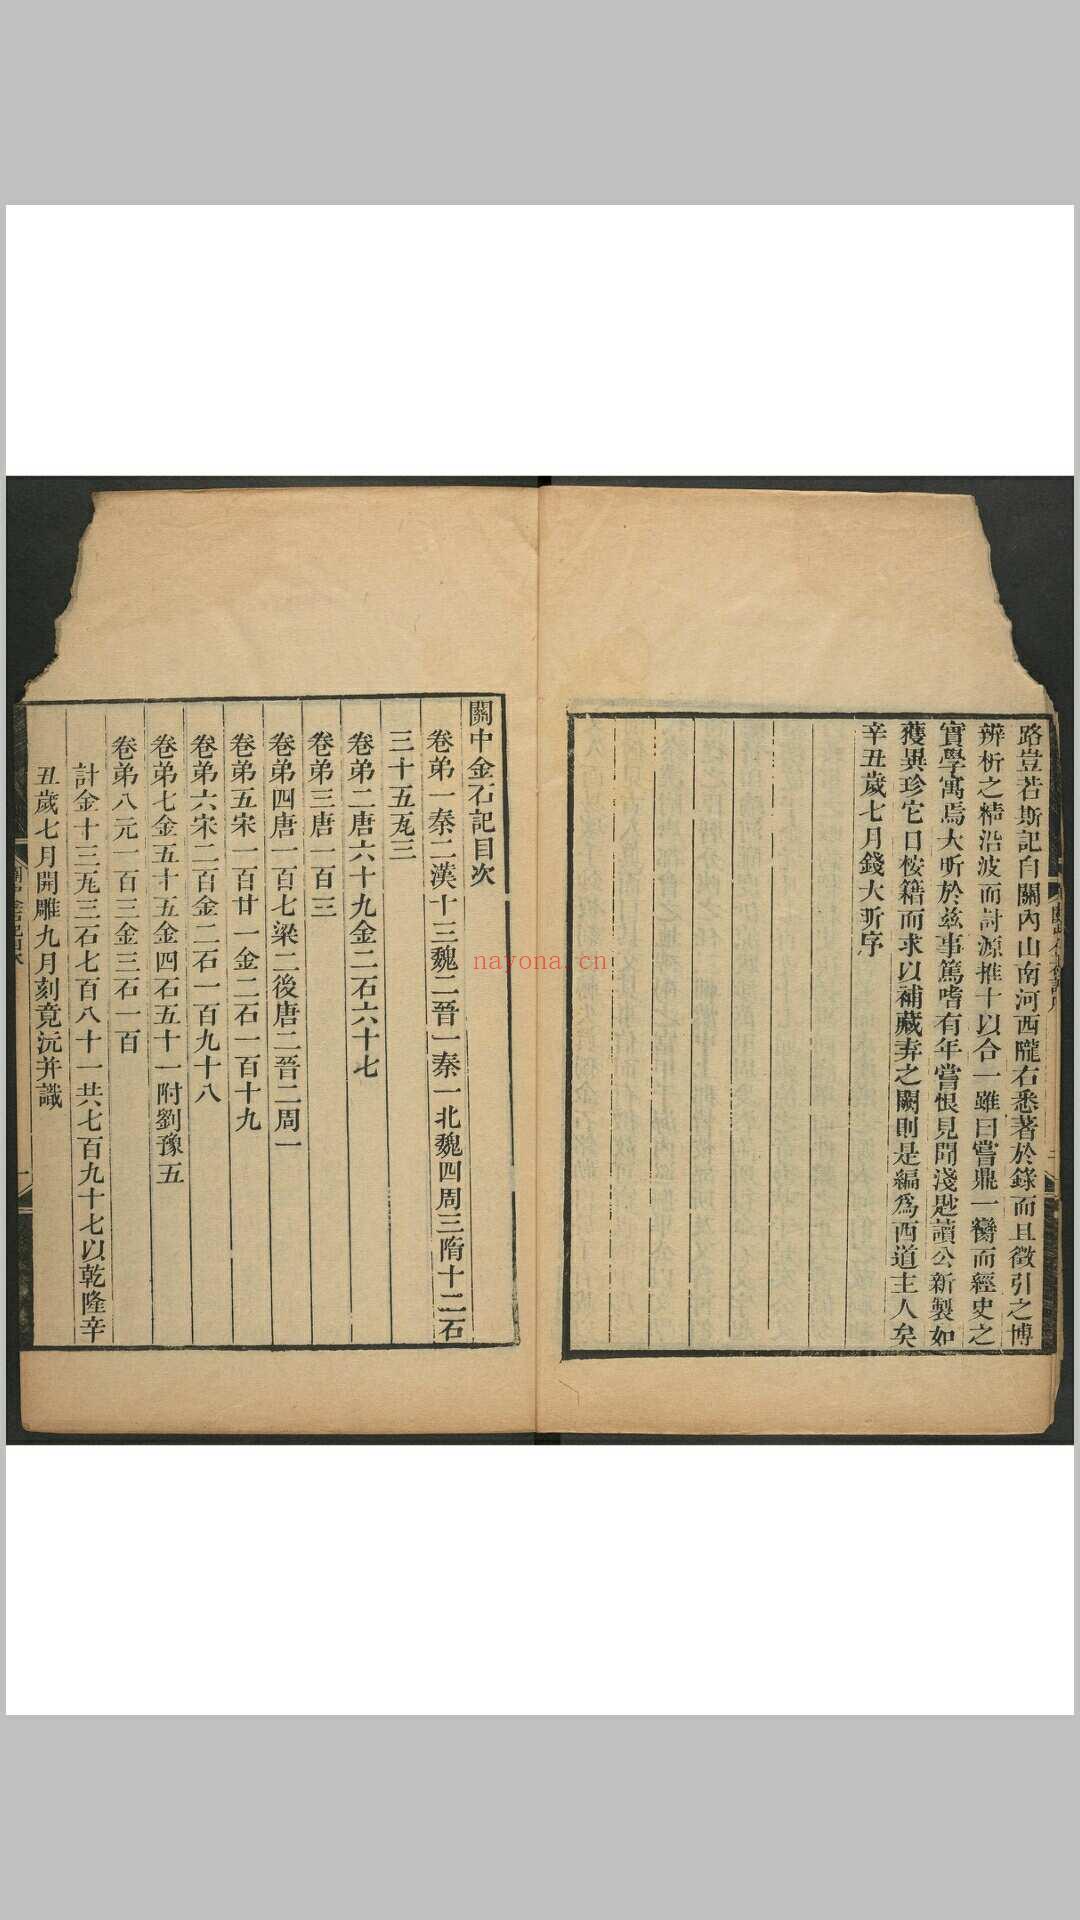 路豈若斯記自關內山南河西隴右悉著於錄而且徵引之博
辨析之精沿波而討源推十以合一雖曰嘗鼎一臠而經史之
實學寓焉大昕於兹事篤嗜有年嘗恨見聞淺尟讀公新製如
獲異珍它日桉籍而求以補藏弆之闕則是編爲西道主人矣
辛丑歲七月錢大昕序
關中金石記目次
卷弟一秦二漢十三魏二晉一秦一北魏四周三隋十二石
三十五瓦三
卷弟二唐六十九金二石六十七
卷弟三唐一百三
卷弟四唐一百七梁二後唐二晉二周一
卷弟五宋一百廿一金二石一百十九
卷弟六宋二百金二石一百九十八
卷弟七金五十五金四石五十一附劉豫五
卷弟八元一百三金三石一百
計金十三瓦三石七百八十一共七百九十七以乾隆辛
丑歲七月開雕九月刻竟沅并識
nayona.cn